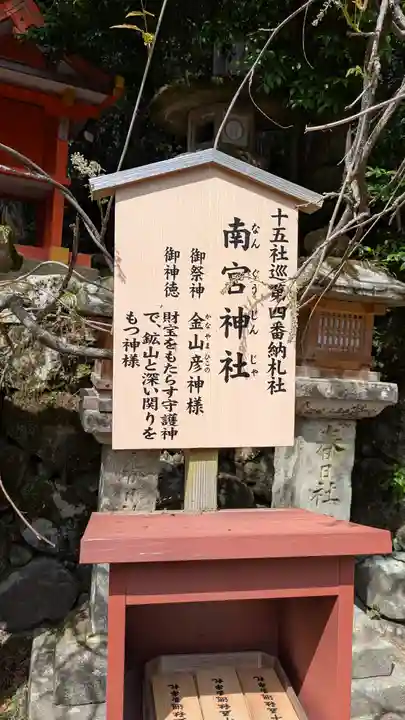 十五社巡第四番納札社
南宮神社
なんぐうじんじゃ
御祭神 金山彦神様
かなやまひこの
御神徳 財宝をもたらす守護神
で、鉱山と深い関りを
もつ神様
春日社